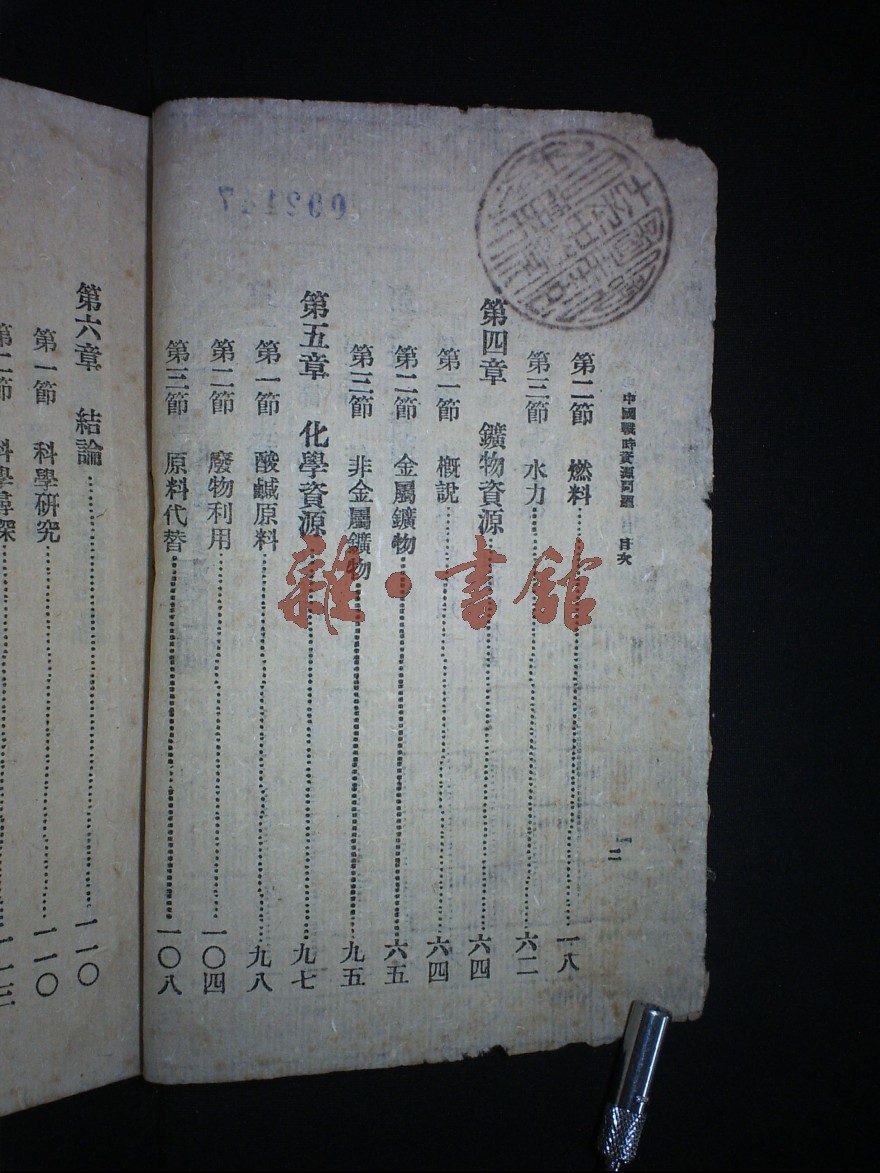 中國戰時資源問題 目次
二
第二節 燃料 一八
第三節 水力 六二
第四章 鑛物資源 六四
第一節 概說 六四
第二節 金屬鑛物 六五
第三節 非金屬鑛物 九五
第五章 化學資源 九七
第一節 酸鹹原料 九八
第二節 廢物利用 一〇四
第三節 原料代替 一〇八
第六章 結論 一一〇
第一節 科學研究 一一〇
第二節 科學尋探 一一三
雜·書館